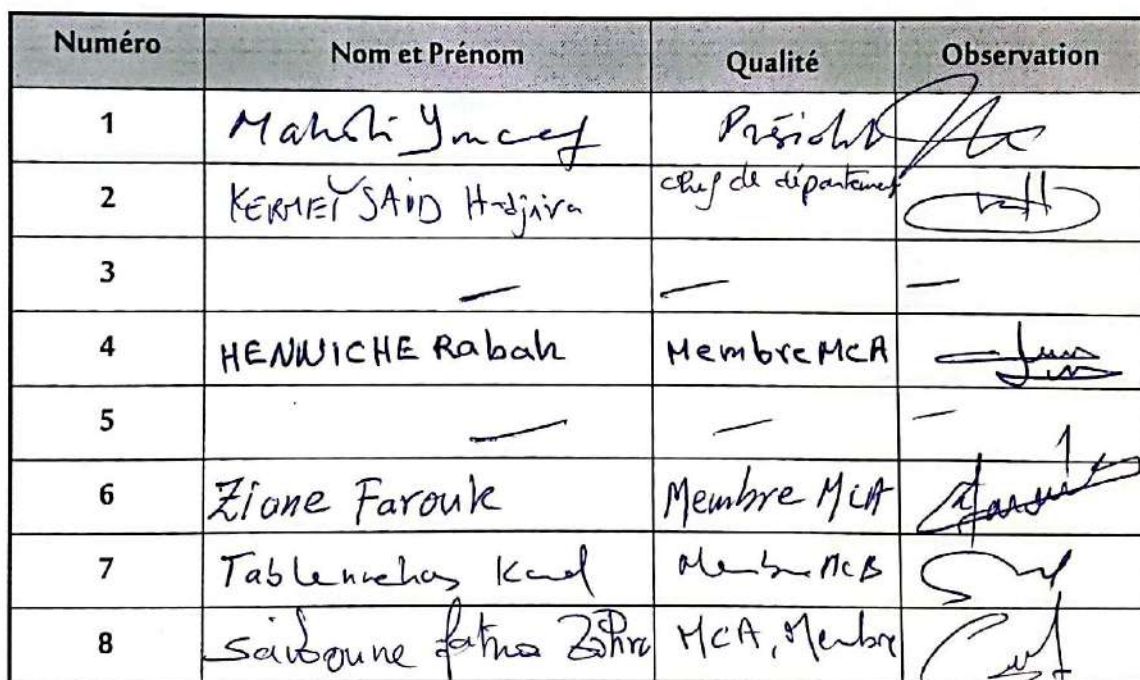 Numéro Nom et Prénom Qualité Observation
1 Mahdi Youcef Président
2 KERMEÏ SAID Hadjira chef de département
3 — — —
4 HENNICHE Rabah Membre MCA
5 — — —
6 Ziane Farouk Membre MCA
7 Membre MCB
8 fatma Zohra MCA, Membre